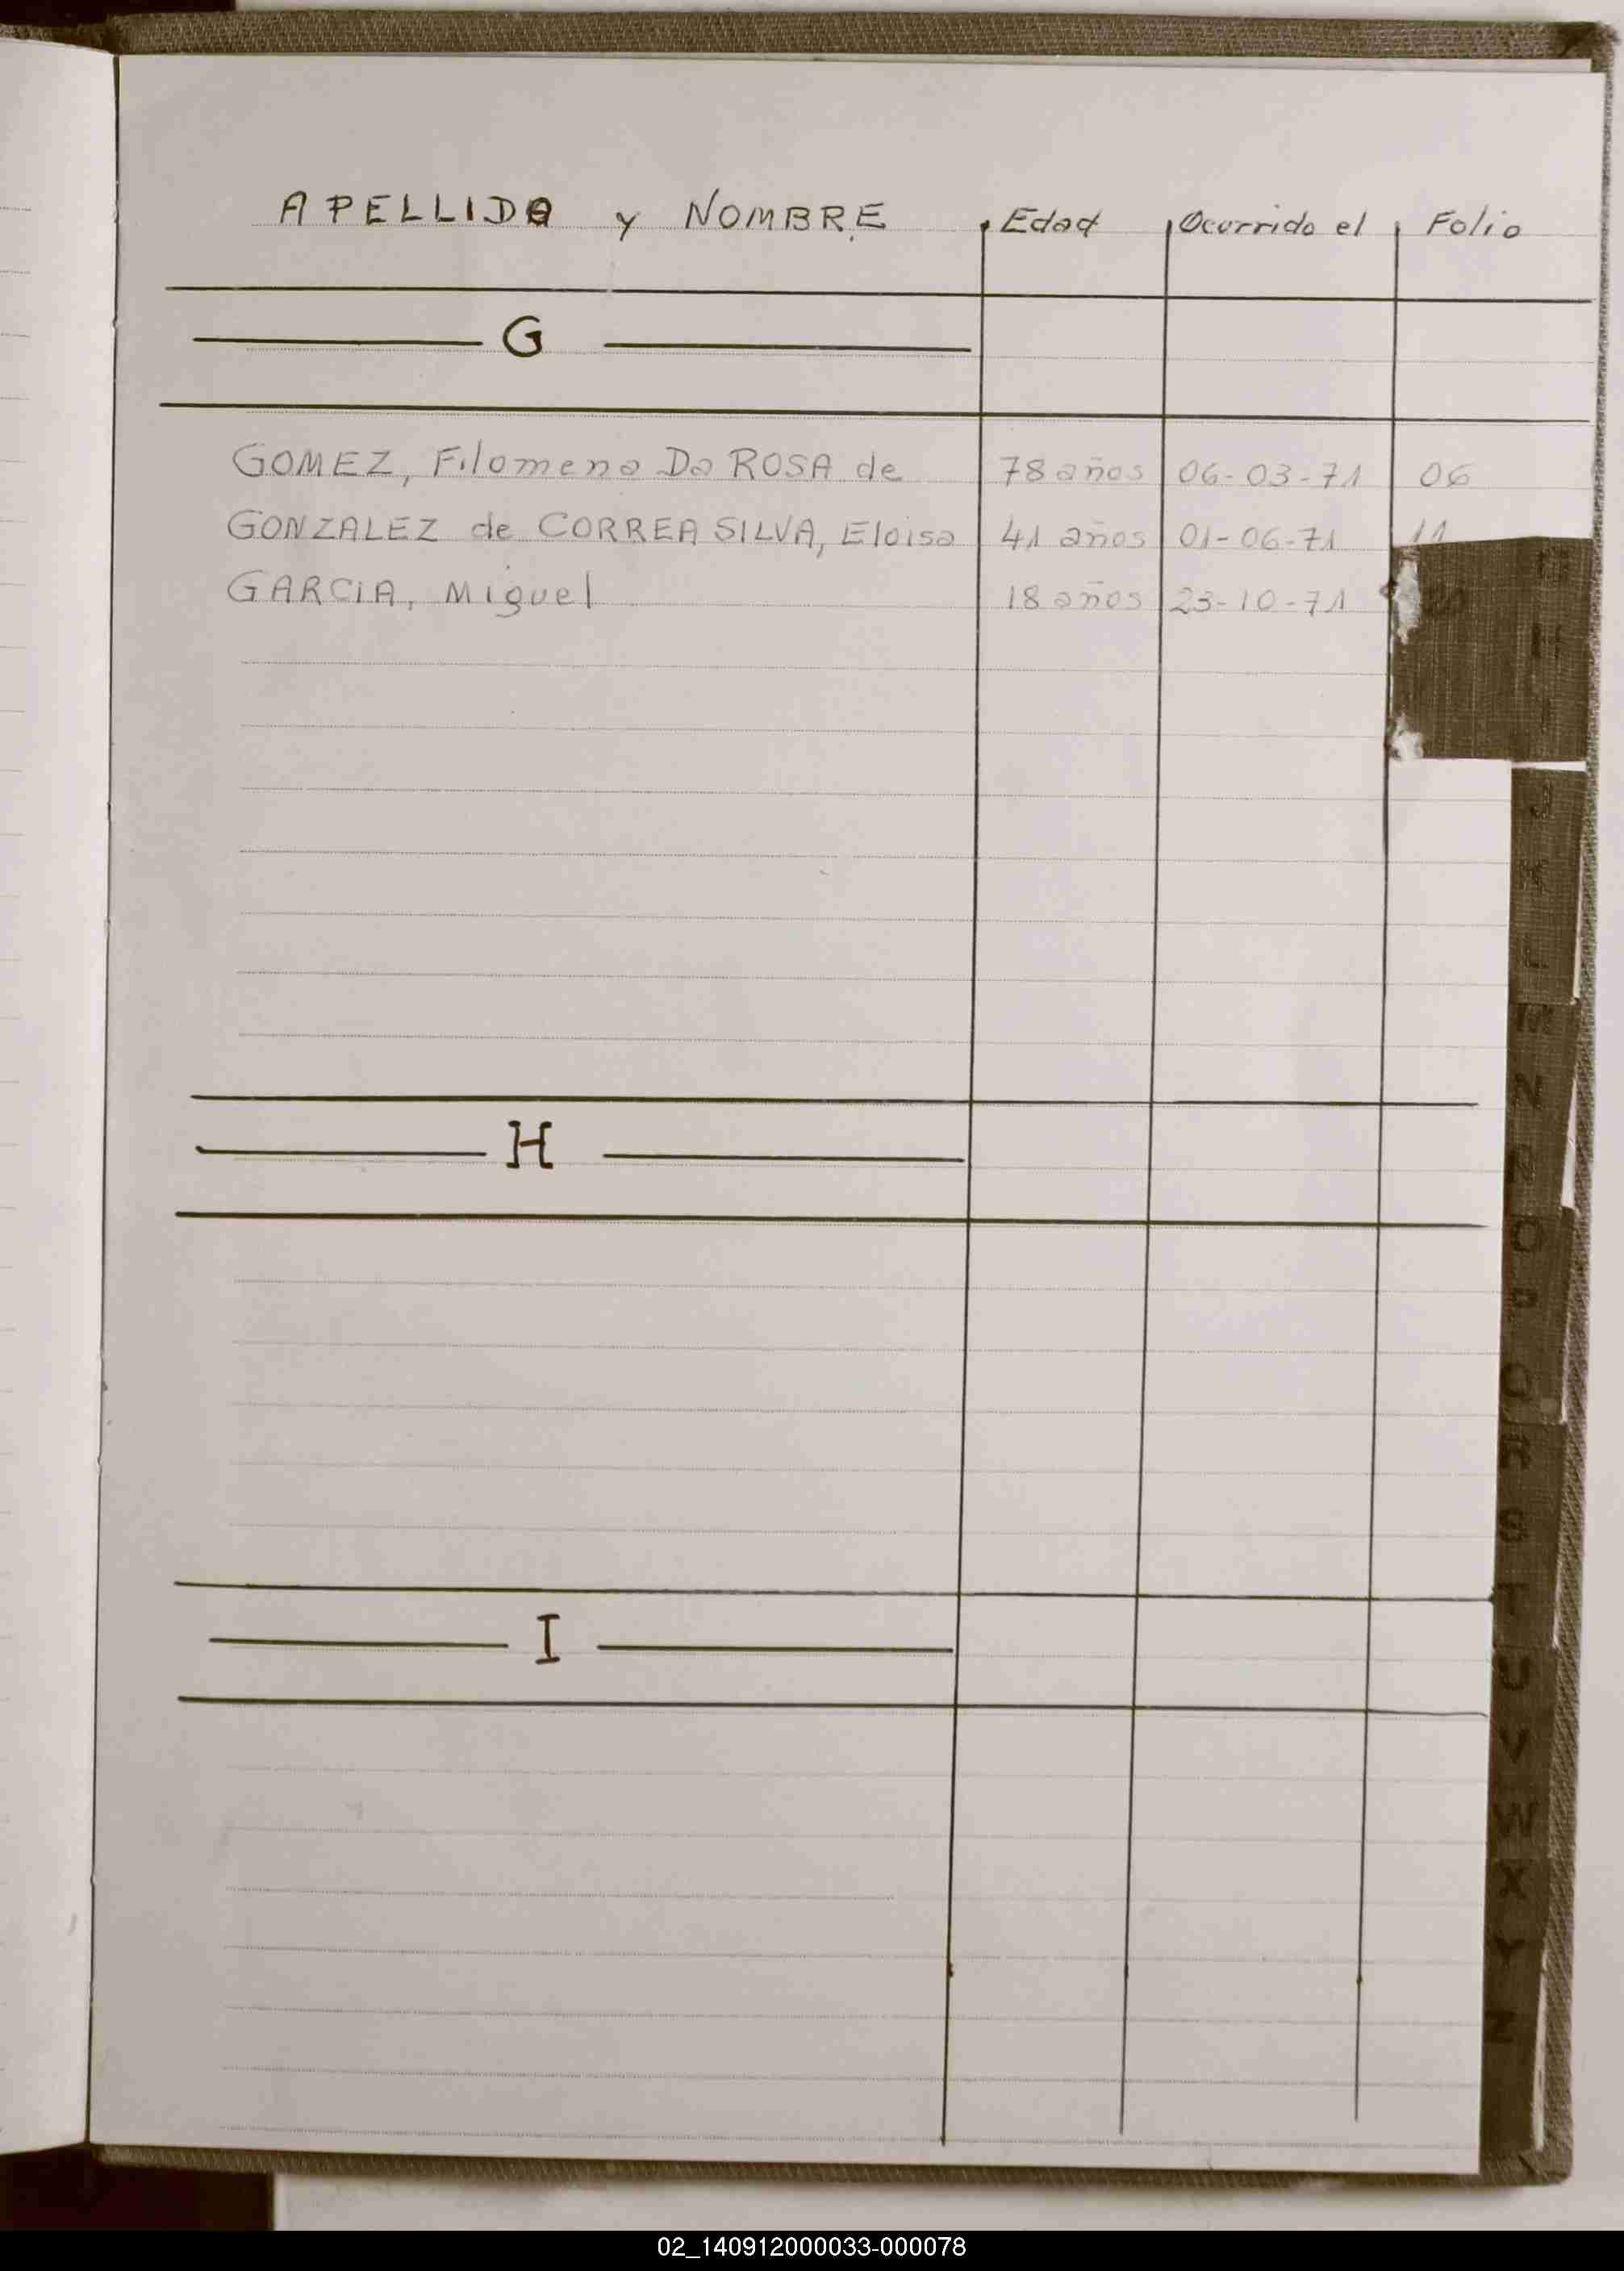 APELLIDO y NOMBRE Edad Ocurrido el Folio
G
GOMEZ, Filomena Da ROSA de 78 años 06-03-71 06
GONZALEZ de CORREA SILVA, Eloisa 41 años 01-06-71 11
GARCIA, Miguel 18 años 23-10-71
H
I
H
I
J
K
L
M
N
Ñ
O
P
Q
R
S
T
U
V
W
X
Y
Z
02_140912000033-000078